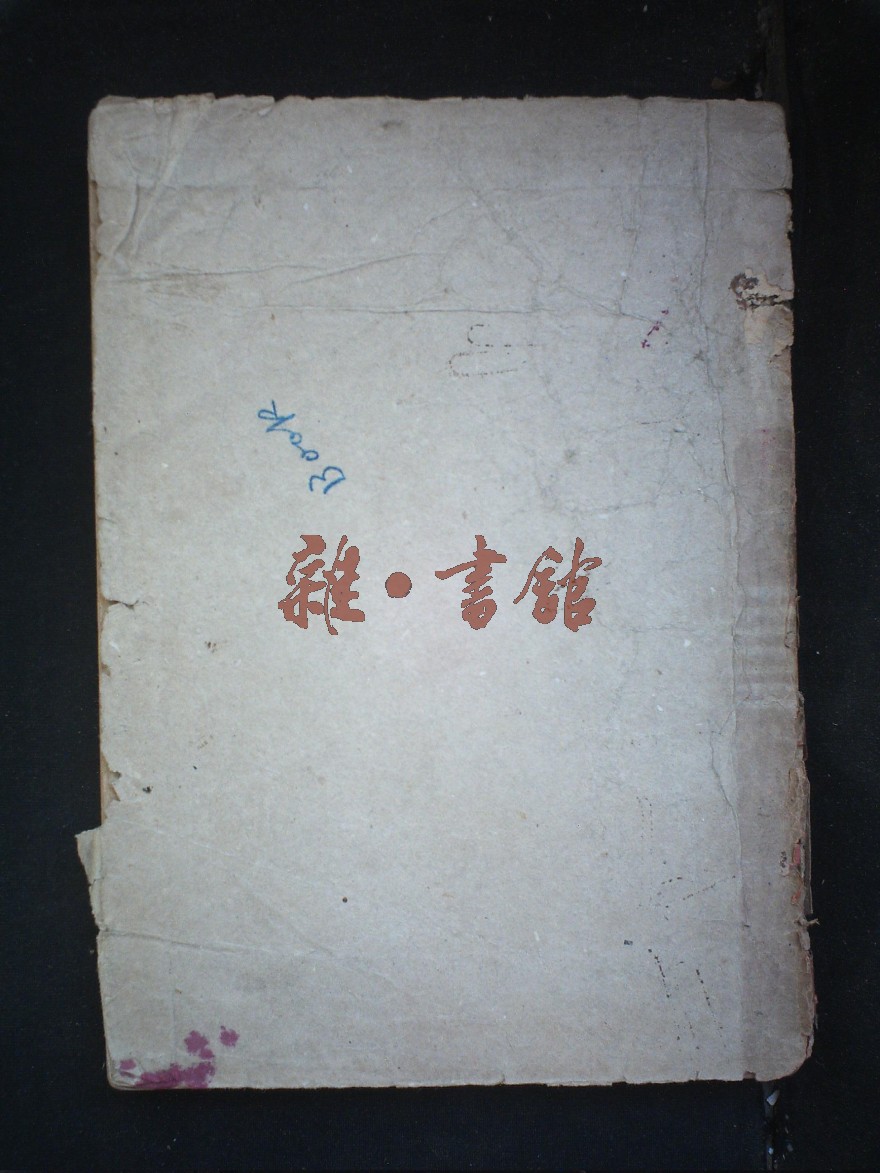 Book
雜·書館